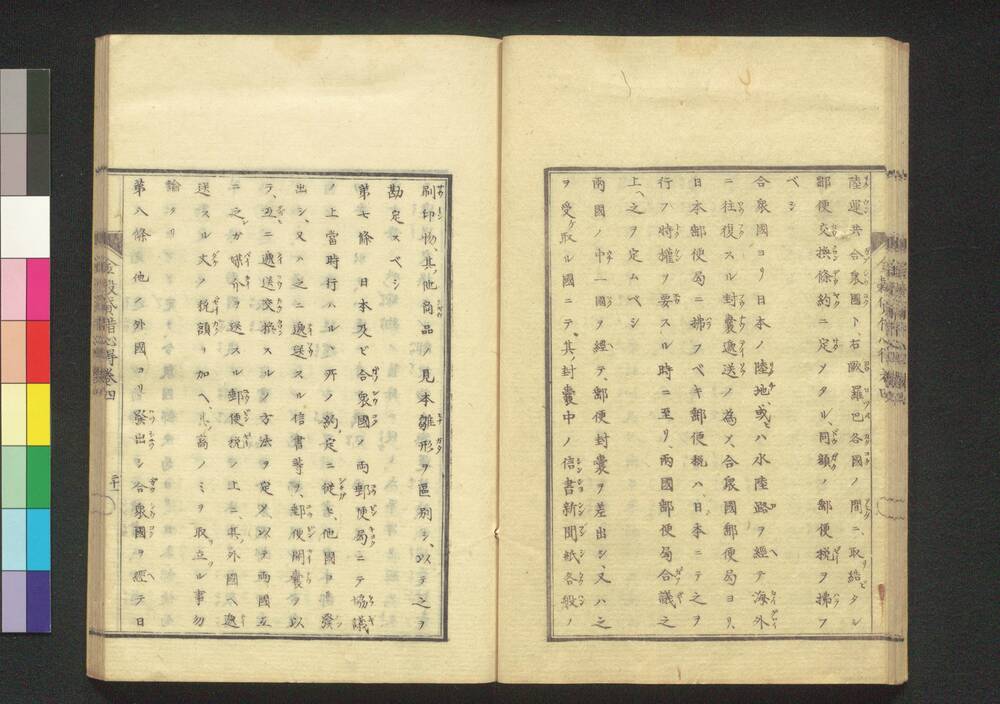 陸運共合衆國ト、右歐羅巴各國ノ間ニ、取結ビタル
郵便交換條約ニ定メタル、同額ノ郵便税ヲ拂フ
ベシ
合衆國ヨリ日本ノ陸地、或ハ水陸路ヲ經テ海外
ニ往復スル封囊遞送ノ為メ、合衆國郵便局ヨリ、
日本郵便局ニ拂フベキ郵便税ハ、日本ニテ之ヲ
行フ時權ヲ要スル時ニ至リ、兩國郵便局合議之
上、之ヲ定ムベシ
兩國ノ中一國ヲ經テ、郵便封囊ヲ差出シ、又ハ之
ヲ受取ル國ニテ、其ノ封囊中ノ信書新聞紙各般ノ
刷印物其他商品ノ見本雛形ヲ區別シ、以テ之ヲ
勘定スベシ
第七條 日本及ビ合衆國ノ兩郵便局ニテ協議
ノ上當時行ハルヽ所ノ約定ニ從ヒ、他國ヨリ發
出シ、又ハ之ニ遞送スル信書等ヲ、郵便開囊ヲ以
テ、互ニ遞送交換スルノ方法ヲ定メ以テ兩國互
ニ之ガ媒介ヲ送スル郵便税ノ上ニ、其外國ヘ遞
送スル丈ケノ税額ヲ加ヘ、其高ノミヲ取立ル事勿
論タリ
第八條 他之外國ヨリ發出シ合衆國ヲ經テ日
金穀貸借心得 卷四